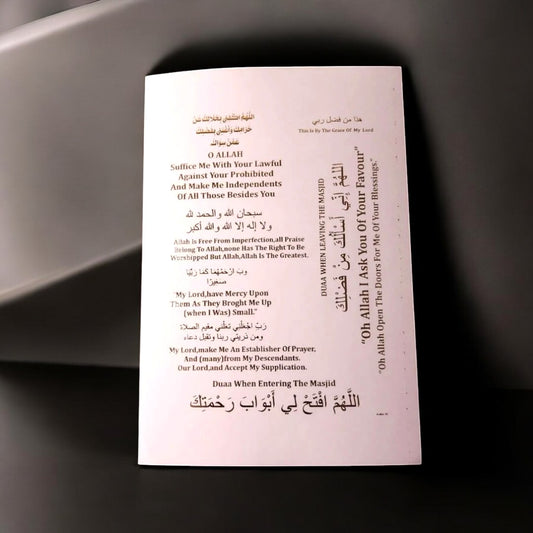 اللَّهُمَّ اكْفِنِي بِحَلَالِكَ عَنْ
حَرَامِكَ وَأَغْنِنِي بِفَضْلِكَ
عَمَّنْ سِوَاكَ
O ALLAH
Suffice Me With Your Lawful
Against Your Prohibited
And Make Me Independents
Of All Those Besides You
سبحان الله والحمد لله
ولا إله إلا الله والله أكبر
Allah Is Free From Imperfection,all Praise
Belong To Allah,none Has The Right To Be
Worshipped But Allah,Allah Is The Greatest.
رَبِّ ارْحَمْهُمَا كَمَا رَبَّيَا
صَغِيرًا
"My Lord,have Mercy Upon
Them As They Broght Me Up
(when I Was) Small."
رَبِّ اجْعَلْنِي مقيم الصلاة
ومن ذريتي ربنا وتقبل دعاء
My Lord,make Me An Establisher Of Prayer,
And (many)from My Descendants.
Our Lord,and Accept My Supplication.
Duaa When Entering The Masjid
اللَّهُمَّ افْتَحْ لِي أَبْوَابَ رَحْمَتِكَ
هذا من فضل ربي
This Is By The Grace Of My Lord
DUAA WHEN LEAVING THE MASJID
اللهُمَّ إِنِّي أَسْأَلُكَ مِنْ فَضْلِكَ
"Oh Allah I Ask You Of Your Favour"
"Oh Allah Open The Doors For Me Of Your Blessings."